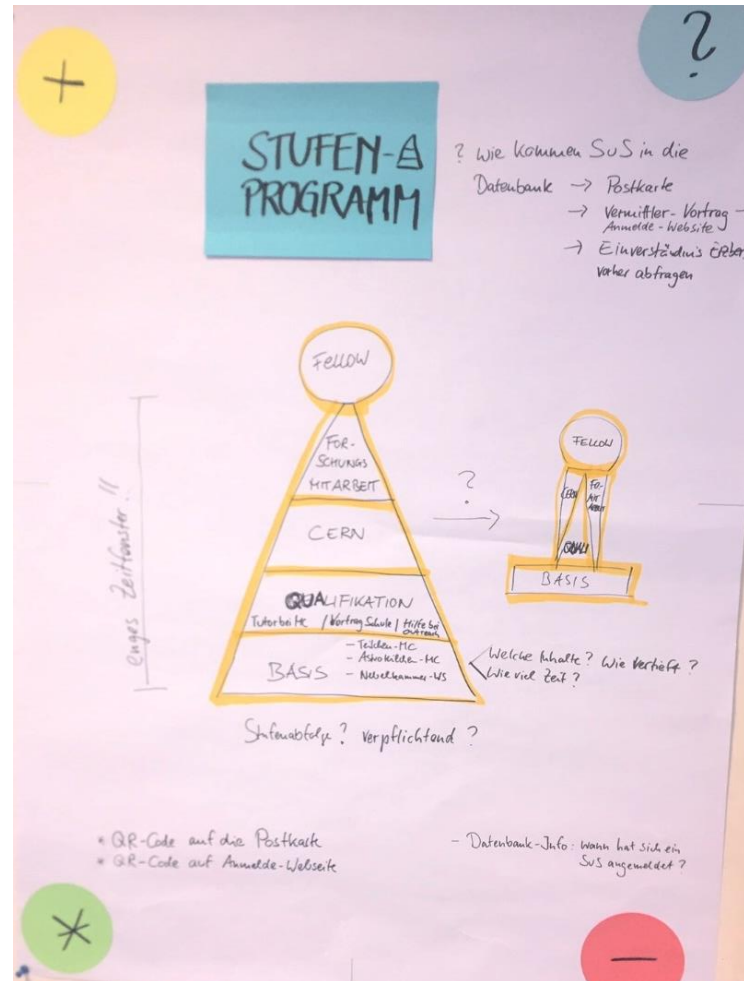 +
?
STUFEN-
PROGRAMM
? Wie kommen SuS in die
Datenbank → Postkarte
→ Vermittler-Vortrag -
Anmelde-Website
→ Einverständnis
vorher abfragen
FELLOW
FOR-
SCHUNGS
MITARBEIT
CERN
QUALIFIKATION
Tutor bei MC / Vortrag Schule / Hilfe bei
outreach
BASIS
- Teilchen-MC
- Astroteilchen-MC
- Nebelkammer-WS
enges Zeitfenster!!
?
→
FELLOW
CERN
FO-
MIT
ARBEIT
QUALI
BASIS
Welche Inhalte? Wie vertieft?
Wie viel Zeit?
Stufenabfolge? verpflichtend?
* QR-Code auf die Postkarte
* QR-Code auf Anmelde-Webseite
- Datenbank-Info: wann hat sich ein
SuS angemeldet?
*
−